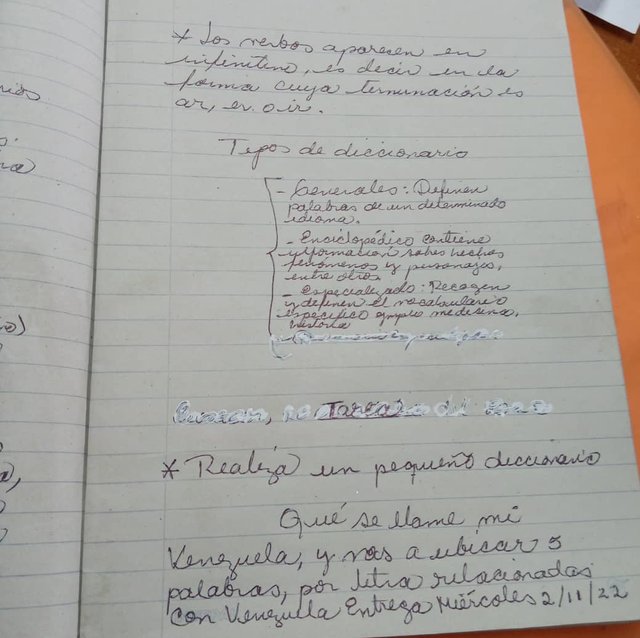 * Los verbos aparecen en
infinitivo, es decir en la
forma cuya terminación es
ar, er o ir.
Tipos de diccionario
- Generales: Definen
palabras de un determinado
idioma.
- Enciclopédico contiene
información sobre hechos
fenómenos y personajes,
entre otros
- Especializado: Recogen
y definen el vocabulario
específico ejemplo medicina,
historia
Tarea
* Realiza un pequeño diccionario
Qué se llame mi
Venezuela, y vas a ubicar 5
palabras, por letra relacionadas
con Venezuela Entrega Miércoles 2/11/22